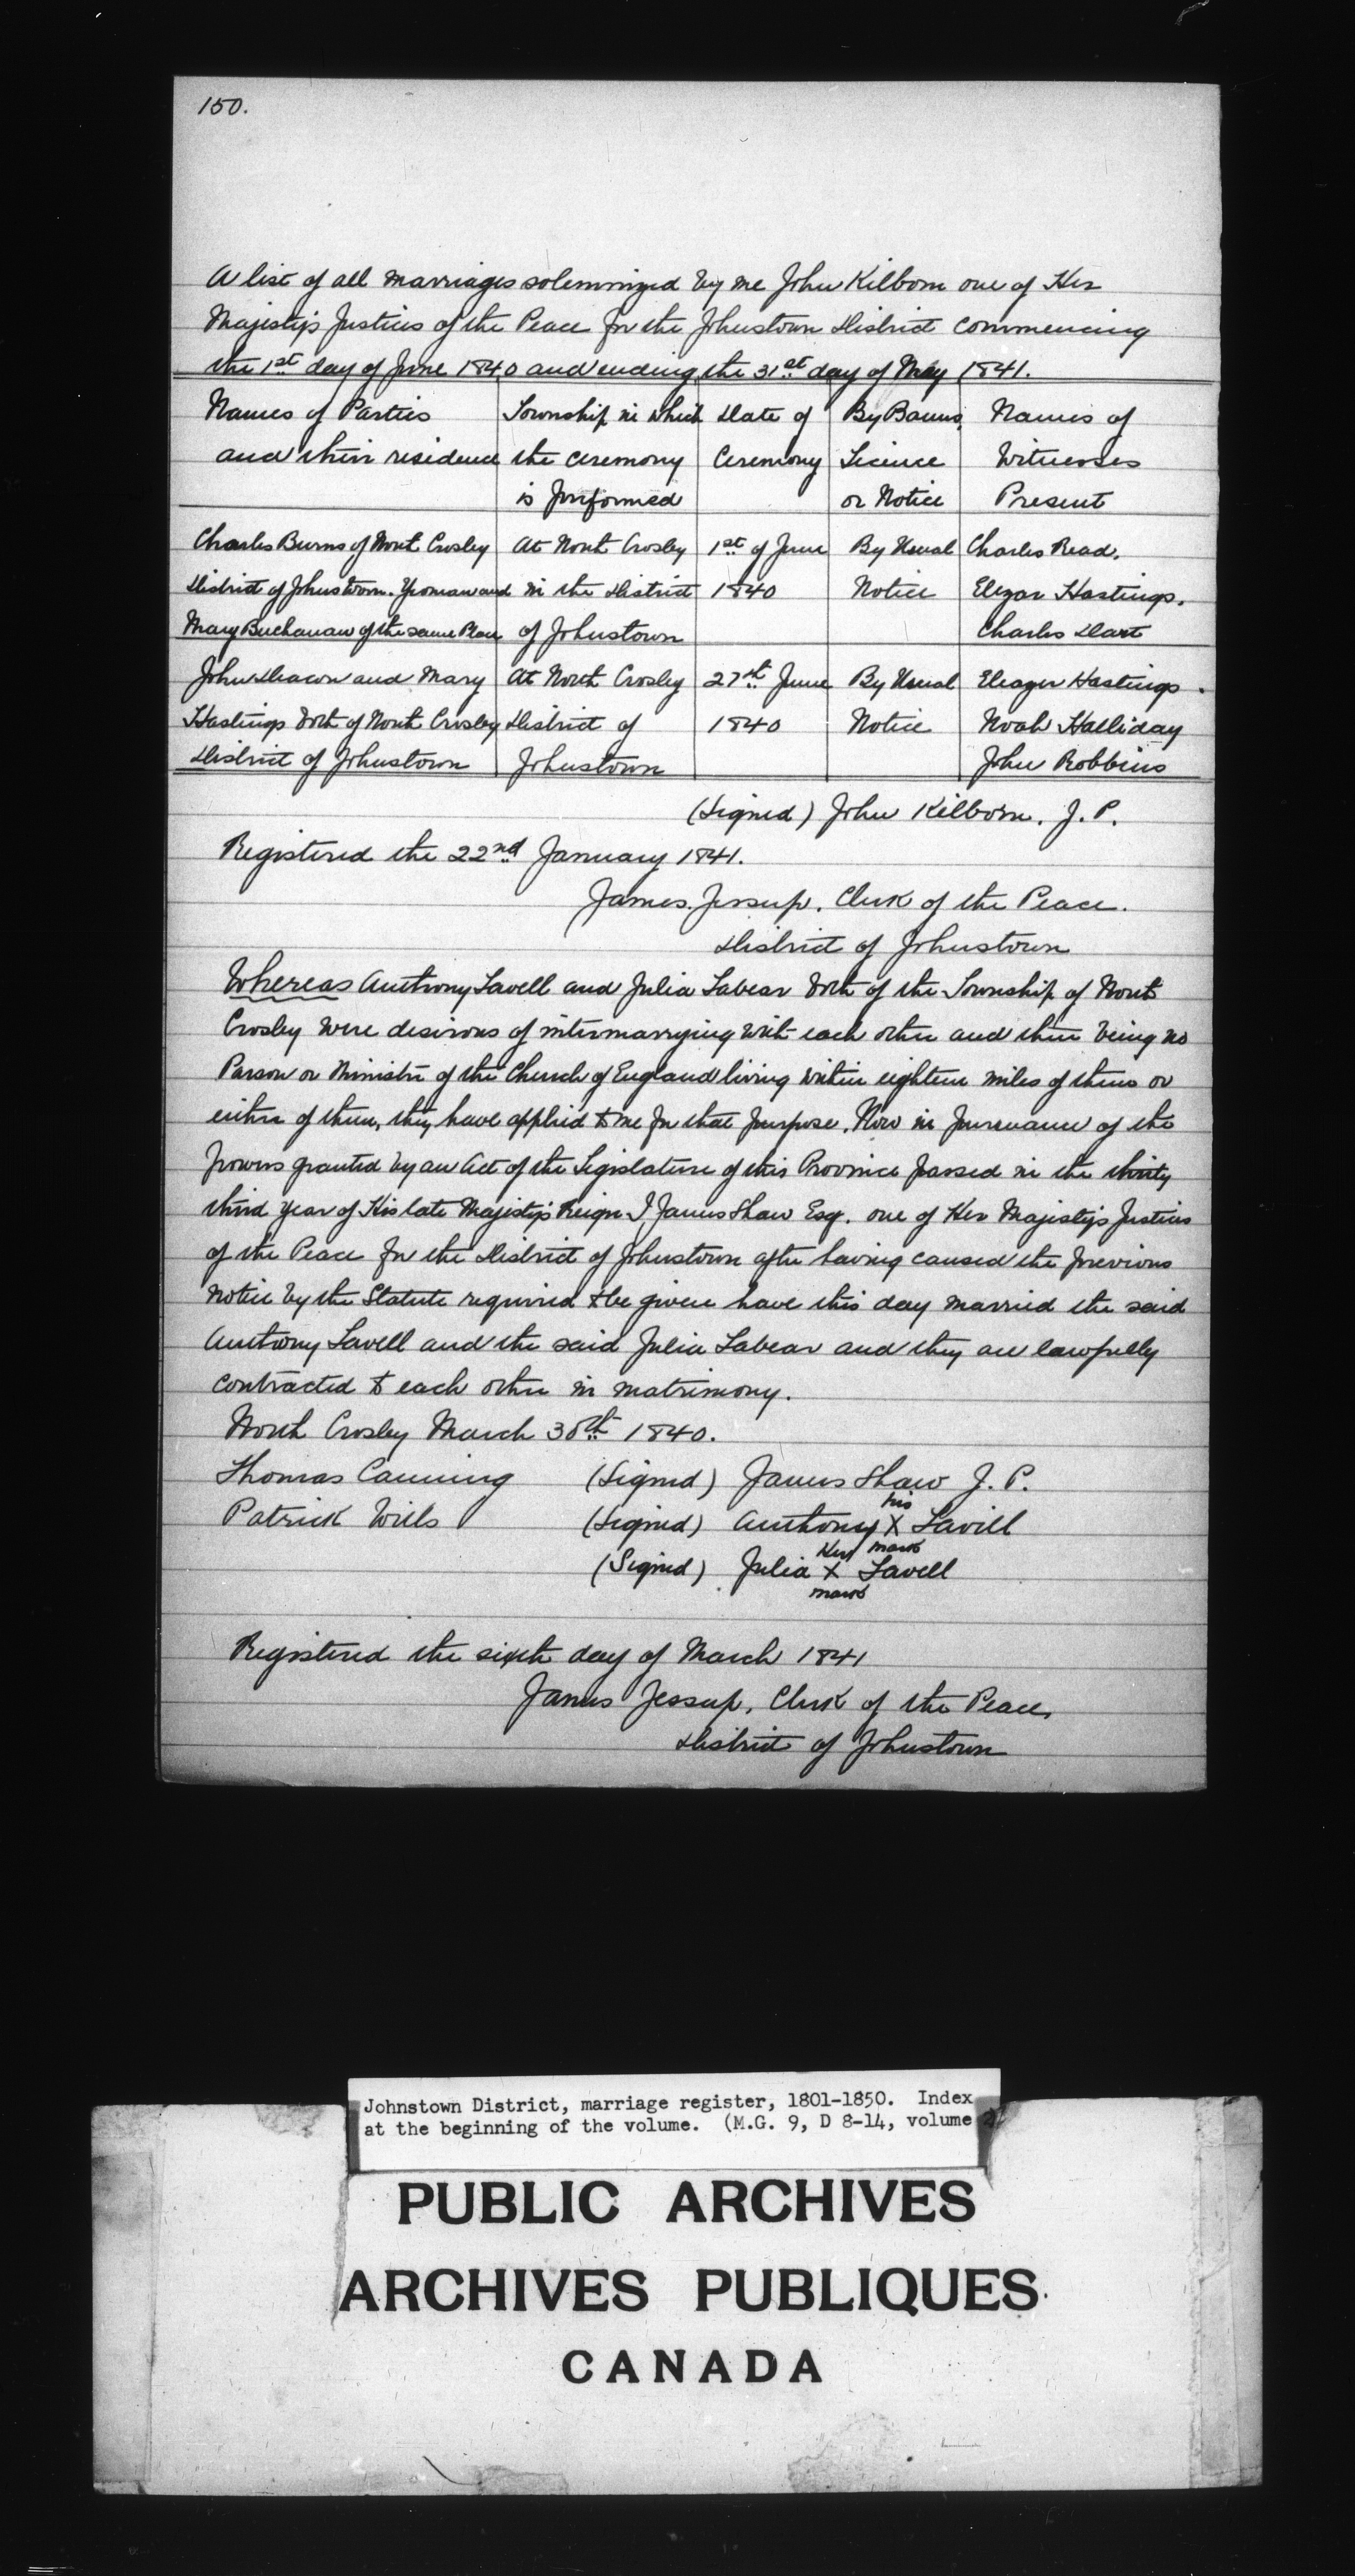 150.
A list of all marriages solemnized by me John Kilborn one of Her
Majesty's Justices of the Peace for the Johnstown District commencing
the 1st day of June 1840 and ending the 31st day of May 1841.
Names of Parties Township in which Date of By Banns, Names of
and their residence the ceremony Ceremony Licence Witnesses
is performed or Notice Present
Charles Burns of North Crosby At North Crosby 1st of June By Usual Charles Read.
District of Johnstown. Yeoman and in the District 1840 Notice Elezar Hastings.
Mary Buchanan of the same Place of Johnstown Charles Dart
John Deacon and Mary At North Crosby 27st June By Usual Eleazer Hastings.
Hastings both of North Crosby District of 1840 Notice Noah Halliday
District of Johnstown Johnstown John Robbins
(Signed) John Kilborn. J. P.
Registered the 22nd January 1841.
James Jessup. Clerk of the Peace.
District of Johnstown
Whereas Anthony Lavell and Julia Labear both of the Township of North
Crosby were desirous of intermarrying with each other and there being no
Parson or Minister of the Church of England living within eighteen miles of them or
either of them, they have applied to me for that purpose. Now in pursuance of the
powers granted by an Act of the Legislature of this Province passed in the thirty
third year of His late Majesty's Reign I, James Shaw Esq. one of Her Majesty's Justices
of the Peace for the District of Johnstown after having caused the previous
notice by the Statute required to be given have this day married the said
Anthony Lavell and the said Julia Labear and they are lawfully
contracted to each other in matrimony.
North Crosby March 30th 1840.
Thomas Canning (Signed) James Shaw J. P.
his
Patrick Wills (Signed) Anthony X Lavill
Her mark
(Signed) Julia X Lavell
mark
Registered the sixth day of March 1841
James Jessup, Clerk of the Peace,
District of Johnstown
Johnstown District, marriage register, 1801-1850. Index
at the beginning of the volume. (M.G. 9, D 8-14, volume 2)
PUBLIC ARCHIVES
ARCHIVES PUBLIQUES
CANADA